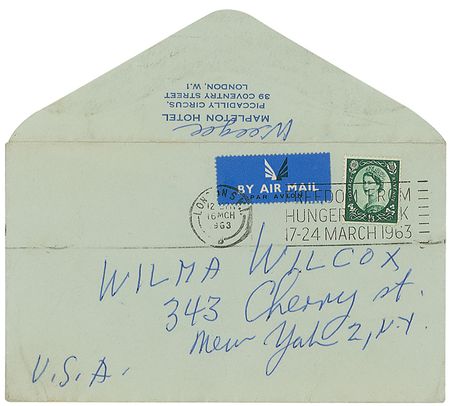 Weegee
MAPLETON HOTEL
39 COVENTRY STREET
PICCADILLY CIRCUS,
LONDON, W.1
BY AIR MAIL
PAR AVION
LONDON S.W.
12
16 MCH
1963
FREEDOM FROM
HUNGER WEEK
17-24 MARCH 1963
WILMA WILCOX
343 Cherry st.
New York 2, N.Y.
U.S.A.